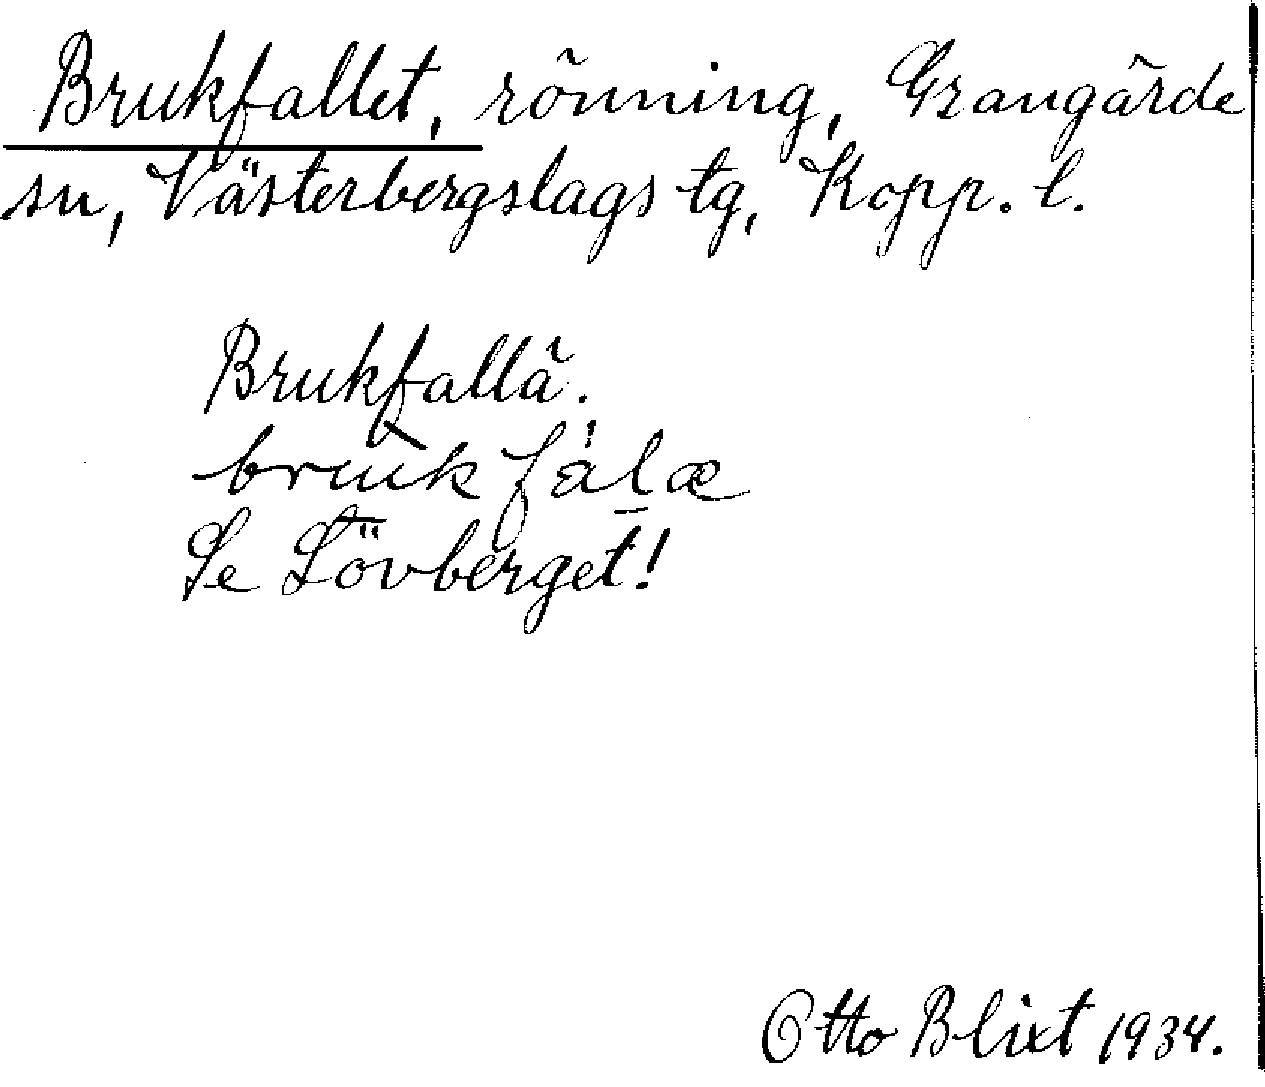 Brukfallet, rönning, Grangärde
sn, Västerbergslags tg, Kopp. l.
Brukfallä.
bruukfalæ
Se Lövberget!
Otto Blixt 1934.